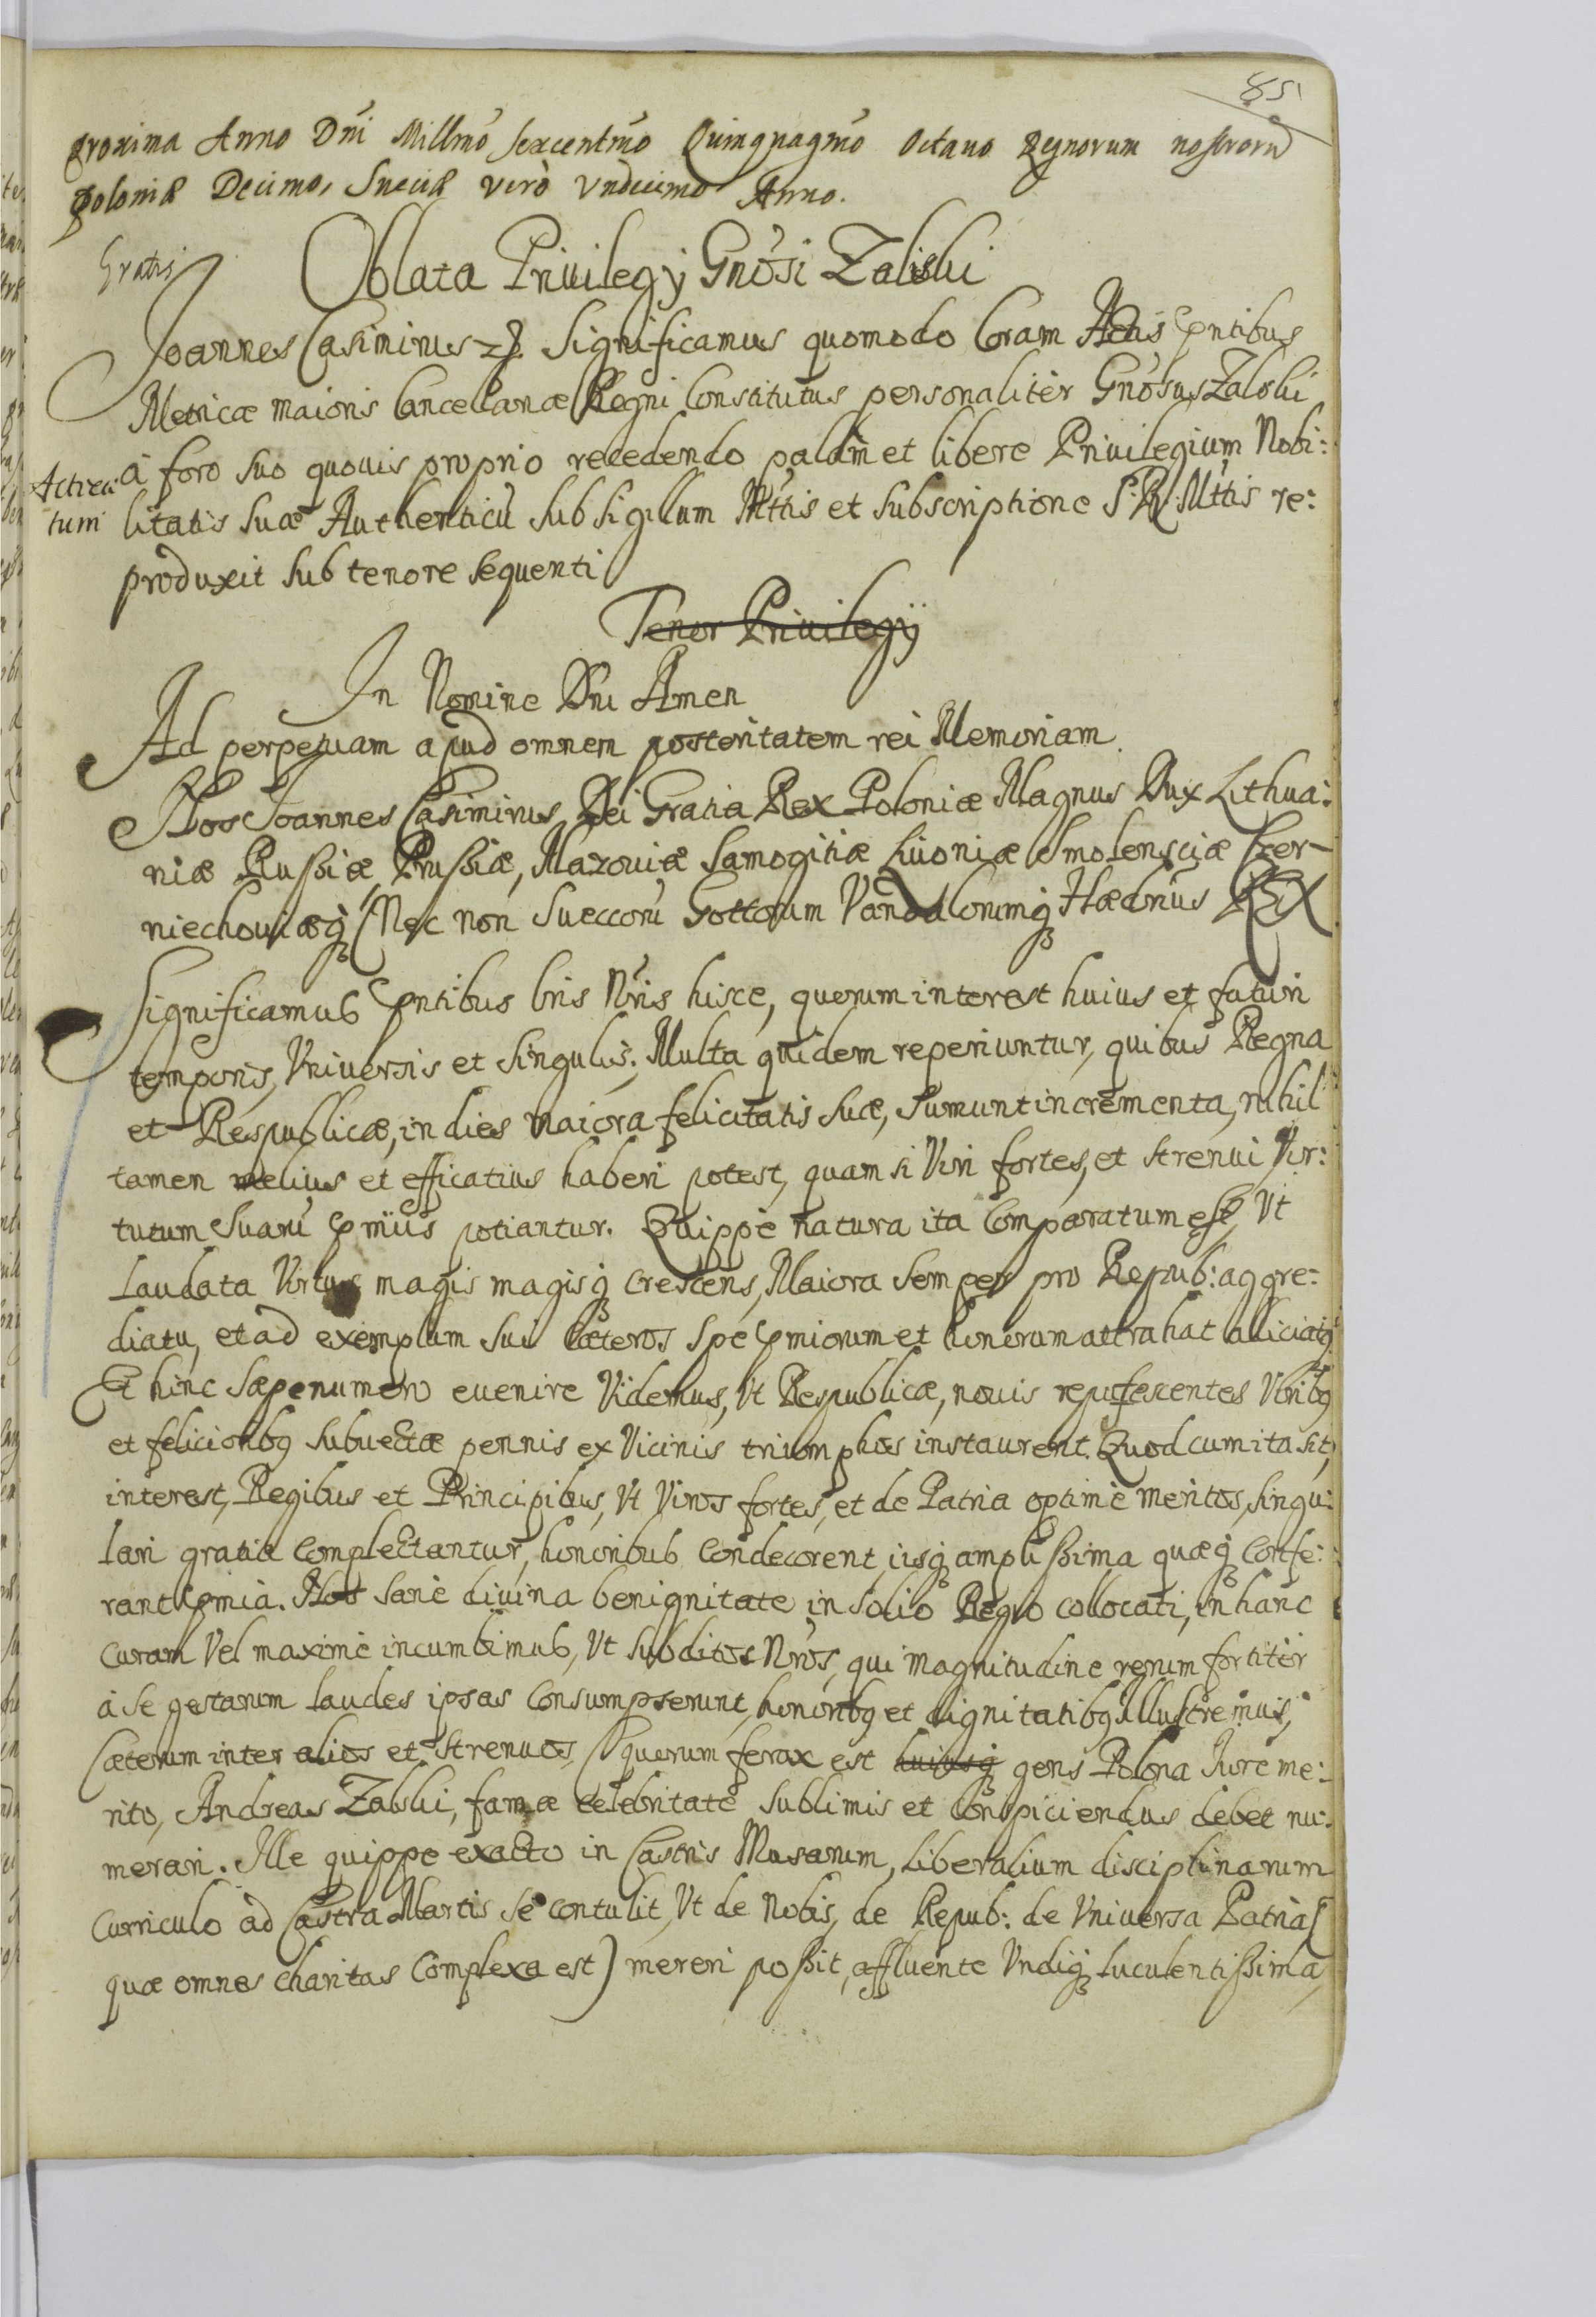 851
proxima Anno Dni Millmo sexcentmo Quinquagmo Octauo Regnorum nostrorũ
Poloniæ Decimo, Sueciæ verò vndecimo Anno.
Gratis
Oblata Priuilegÿ Gnosi Zaliski
Joannes Casimirus Significamus quomodo Coram Actis pntibus
Metricæ maioris Cancellariæ Regni Constitutus personalitèr Gnosus Zalski
Acticatum
à foro suo quouis proprio recedendo palam et libere Priuilegium Nobi:
litatis suæ Authenticũ sub sigillum Mttis et subscriptione S: R: Mttis re:
produxit sub tenore sequenti
Tenor Priuilegÿ
In Nomine Dni Amen
Ad perpetuam apud omnem posteritatem rei Memoriam.
Nos Joannes Casimirus Dei Gratia Rex Poloniæ Magnus Dux Lithua:
niæ Russiæ Prussiæ, Mazouiæ Samogitiæ Liuoniæ Smolensciæ Czer-
niechouiæq Nec non Sueccorũ Gottorum Vandalorumq Hædrius REX
Significamus pntibus lris Nris hisce, quorum interest huius et futuri
temporis, Vniuersis et Singulis. Multa quidem reperiuntur, quibus Regna
et Respublicæ, in dies maiora felicitatis suæ, sumunt incrementa, nihil
tamen melius et efficatius haberi potest, quam si Viri fortes, et strenui Vir:
tutum Suarũ pmiis potiantur. Quippè natura ita Comparatum est, Vt
Laudata Virtus magis magisq crescens, Maiora semper pro Repub: aggre:
diatu, et ad exemplum sui cæteros spe pmiorum et honorum attrahat alliciatq
Et hinc sæpenumero euenire Videmus, Vt Respublicæ, nouis repufescentes Viribq
et felicioribq subuectæ pennis ex Vicinis triumphos instaurent. Quod cum ita sit,
interest, Regibus et Principibus, Vt Viros fortes, et de Patria optimè meritos, singu:
lari gratia complectantur, honoribus Condecorent, iisq amplissima quæq Confe:
rant pmia. Nos sanè diuina benignitate in solio Regio collocati, in hanc
curam Vel maximè incumbimus, Vt subditos Nros, qui magnitudine rerum fortitèr
à se gestarum laudes ipsas Consumpserunt, honoribq et dignitatibq illustremus,
Cæterum inter alios et strenuos, quorum ferax est huiusq gens Polona Jure me:
rito, Andreas Zalski, famæ celebritate sublimis et Conspiciendus debet nu:
merari. Ille quippe exacto in Castris Musarum, Liberalium disciplinarum
Curriculo ad Castra Martis se contulit, Vt de Nobis, de Repub: de Vniuersa Patria (
quæ omnes charitas Complexa est) mereri possit, affluente Vndiq luculentissima,